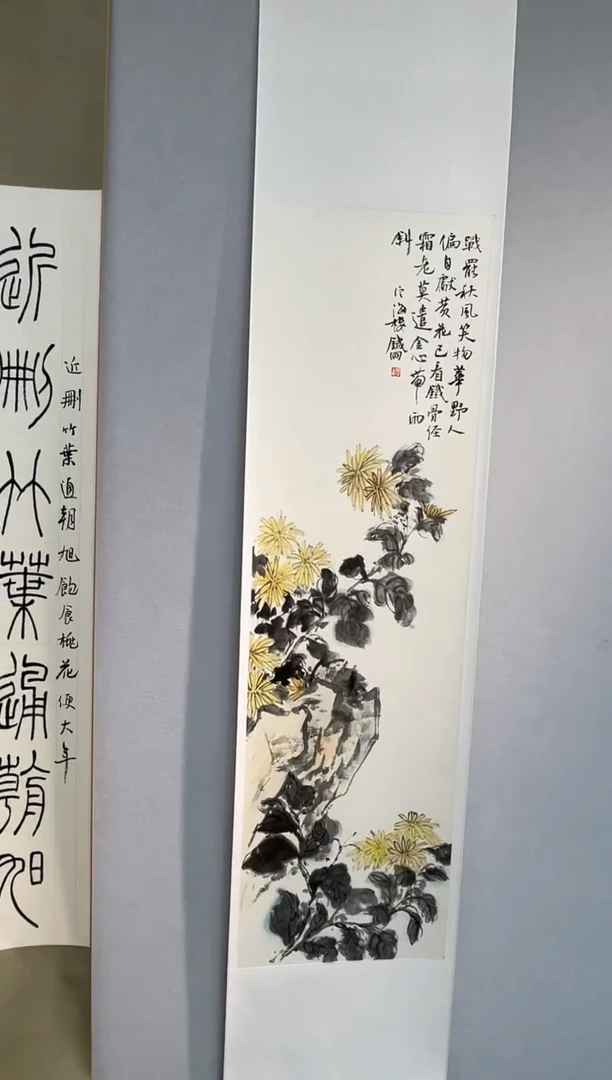 戰罷秋風笑物華野人
偏自獻黃花已看鐵骨經
霜老莫遣金心帶雨
斜
近刪竹葉通朝旭
近刪竹葉通朝旭飽食桃花便大年